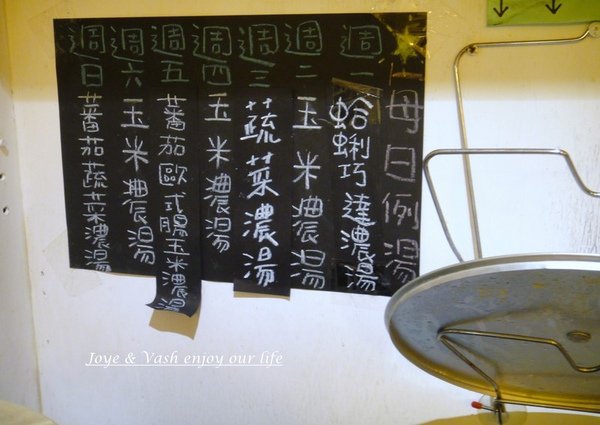 每日例湯
週一
蛤蜊巧達濃湯
週二
玉米濃湯
週三
蔬菜濃湯
週四
玉米濃湯
週五
蕃茄歐式腸玉米濃湯
週六
玉米濃湯
週日
蕃茄蔬菜濃湯
Joye & Vash enjoy our life